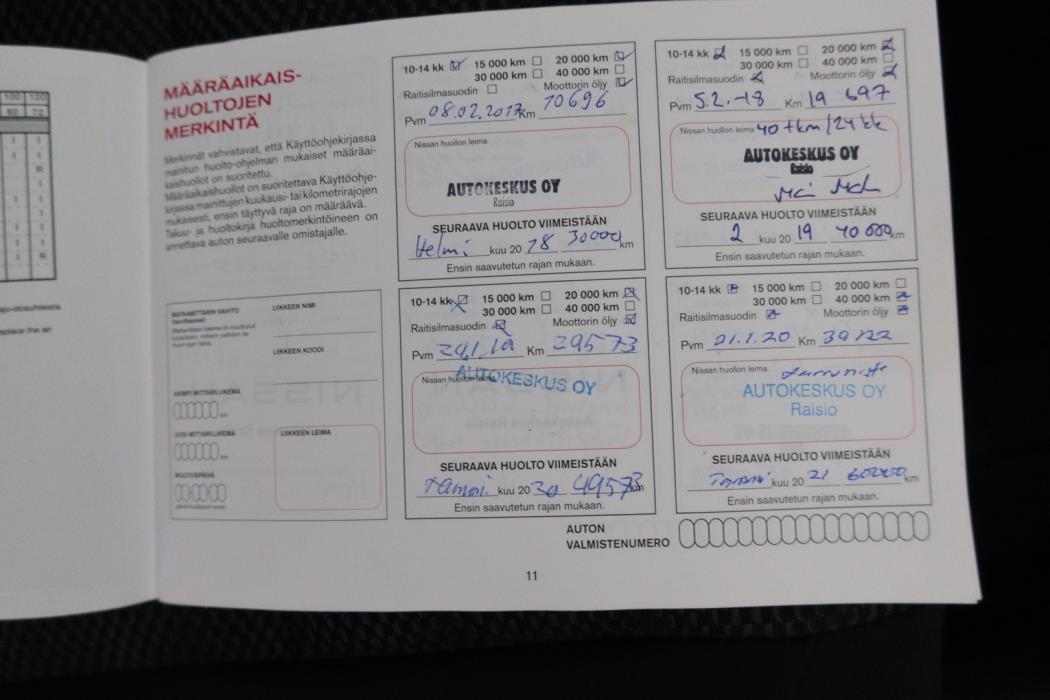 100 120
60 72
I I
I R
I I
I I
I I
I R
place the air
MÄÄRÄAIKAIS-
HUOLTOJEN
MERKINTÄ
Merkinnät vahvistavat, että Käyttöohjekirjassa
mainitun huolto-ohjelman mukaiset määräai-
kaishuollot on suoritettu.
Määräaikaishuollot on suoritettava Käyttöohje-
kirjassa mainittujen kuukausi- tai kilometrirajojen
mukaisesti, ensin täyttyvä raja on määräävä.
Takuu- ja huoltokirja huoltomerkintöineen on
annettava auton seuraavalle omistajalle.
MATKAMITTARIN VAIHTO
LIIKKEEN NIMI
LIIKKEEN KOODI
km
UUSI MITTARILUKEMA
km
MUUTOSPÄIVÄ
LIIKKEEN LEIMA
10-14 kk 15 000 km 20 000 km
30 000 km 40 000 km
Raitisilmasuodin Moottorin öljy
Pvm 08.02.2017 Km 10696
Nissan huollon leima
AUTOKESKUS OY
Raisio
SEURAAVA HUOLTO VIIMEISTÄÄN
Helmi kuu 20 18 30000 km
Ensin saavutetun rajan mukaan.
10-14 kk 15 000 km 20 000 km
30 000 km 40 000 km
Raitisilmasuodin Moottorin öljy
Pvm 5.2.-18 Km 19 697
Nissan huollon leima 40 tkm/24 kk
AUTOKESKUS OY
Raisio
SEURAAVA HUOLTO VIIMEISTÄÄN
2 kuu 20 19 40 000 km
Ensin saavutetun rajan mukaan.
10-14 kk 15 000 km 20 000 km
30 000 km 40 000 km
Raitisilmasuodin Moottorin öljy
Pvm 29.1.19 Km 29573
Nissan huollon leima
AUTOKESKUS OY
SEURAAVA HUOLTO VIIMEISTÄÄN
Tammi kuu 20 20 49573 km
Ensin saavutetun rajan mukaan.
10-14 kk 15 000 km 20 000 km
30 000 km 40 000 km
Raitisilmasuodin Moottorin öljy
Pvm 21.1.20 Km 39122
Nissan huollon leima
AUTOKESKUS OY
Raisio
SEURAAVA HUOLTO VIIMEISTÄÄN
Tammi kuu 20 21 60000 km
Ensin saavutetun rajan mukaan.
AUTON
VALMISTENUMERO
11